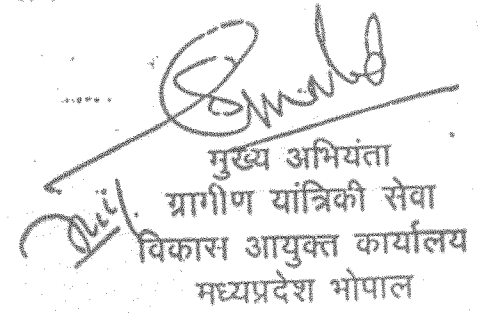 मुख्य अभियंता
ग्रागीण यांत्रिकी सेवा
विकास आयुक्त कार्यालय
मध्यप्रदेश भोपाल